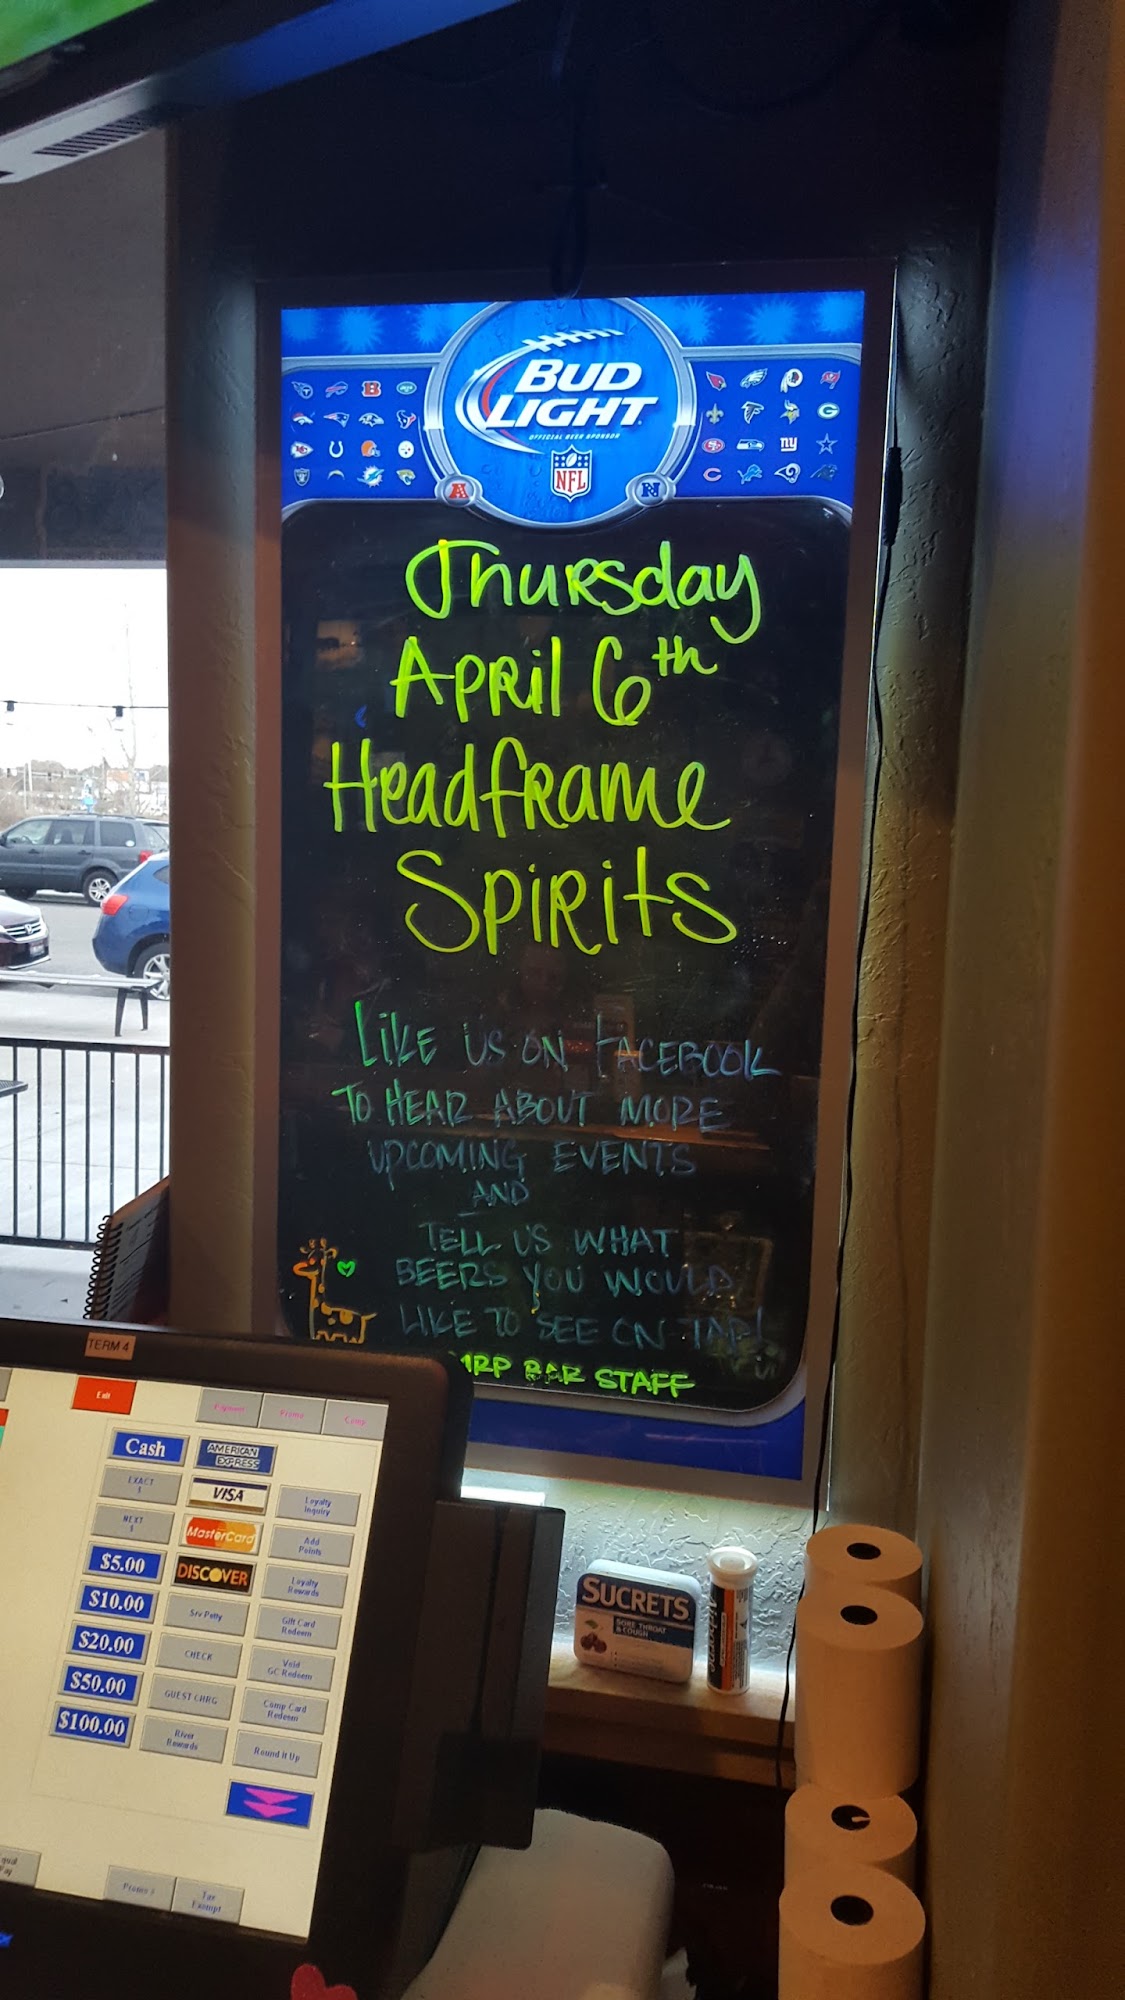 BUD
LIGHT
OFFICIAL BEER SPONSOR
NFL
A
N
Thursday
April 6th
Headframe
Spirits
LIKE US ON FACEBOOK
TO HEAR ABOUT MORE
UPCOMING EVENTS
AND
TELL US WHAT
BEERS YOU WOULD
LIKE TO SEE ON TAP!
MRP BAR STAFF
TERM 4
Exit
Payment
Promo
Comp
Cash
AMERICAN
EXPRESS
EXACT
$
VISA
Loyalty
Inquiry
NEXT
$
MasterCard
Add
Points
$5.00
DISCOVER
Loyalty
Rewards
$10.00
Srv Petty
Gift Card
Redeem
$20.00
CHECK
Void
GC Redeem
$50.00
GUEST CHRG
Comp Card
Redeem
$100.00
River
Rewards
Round it Up
Pay
Promo
Tax
Exempt
SUCRETS
SORE THROAT
& COUGH
Airborne